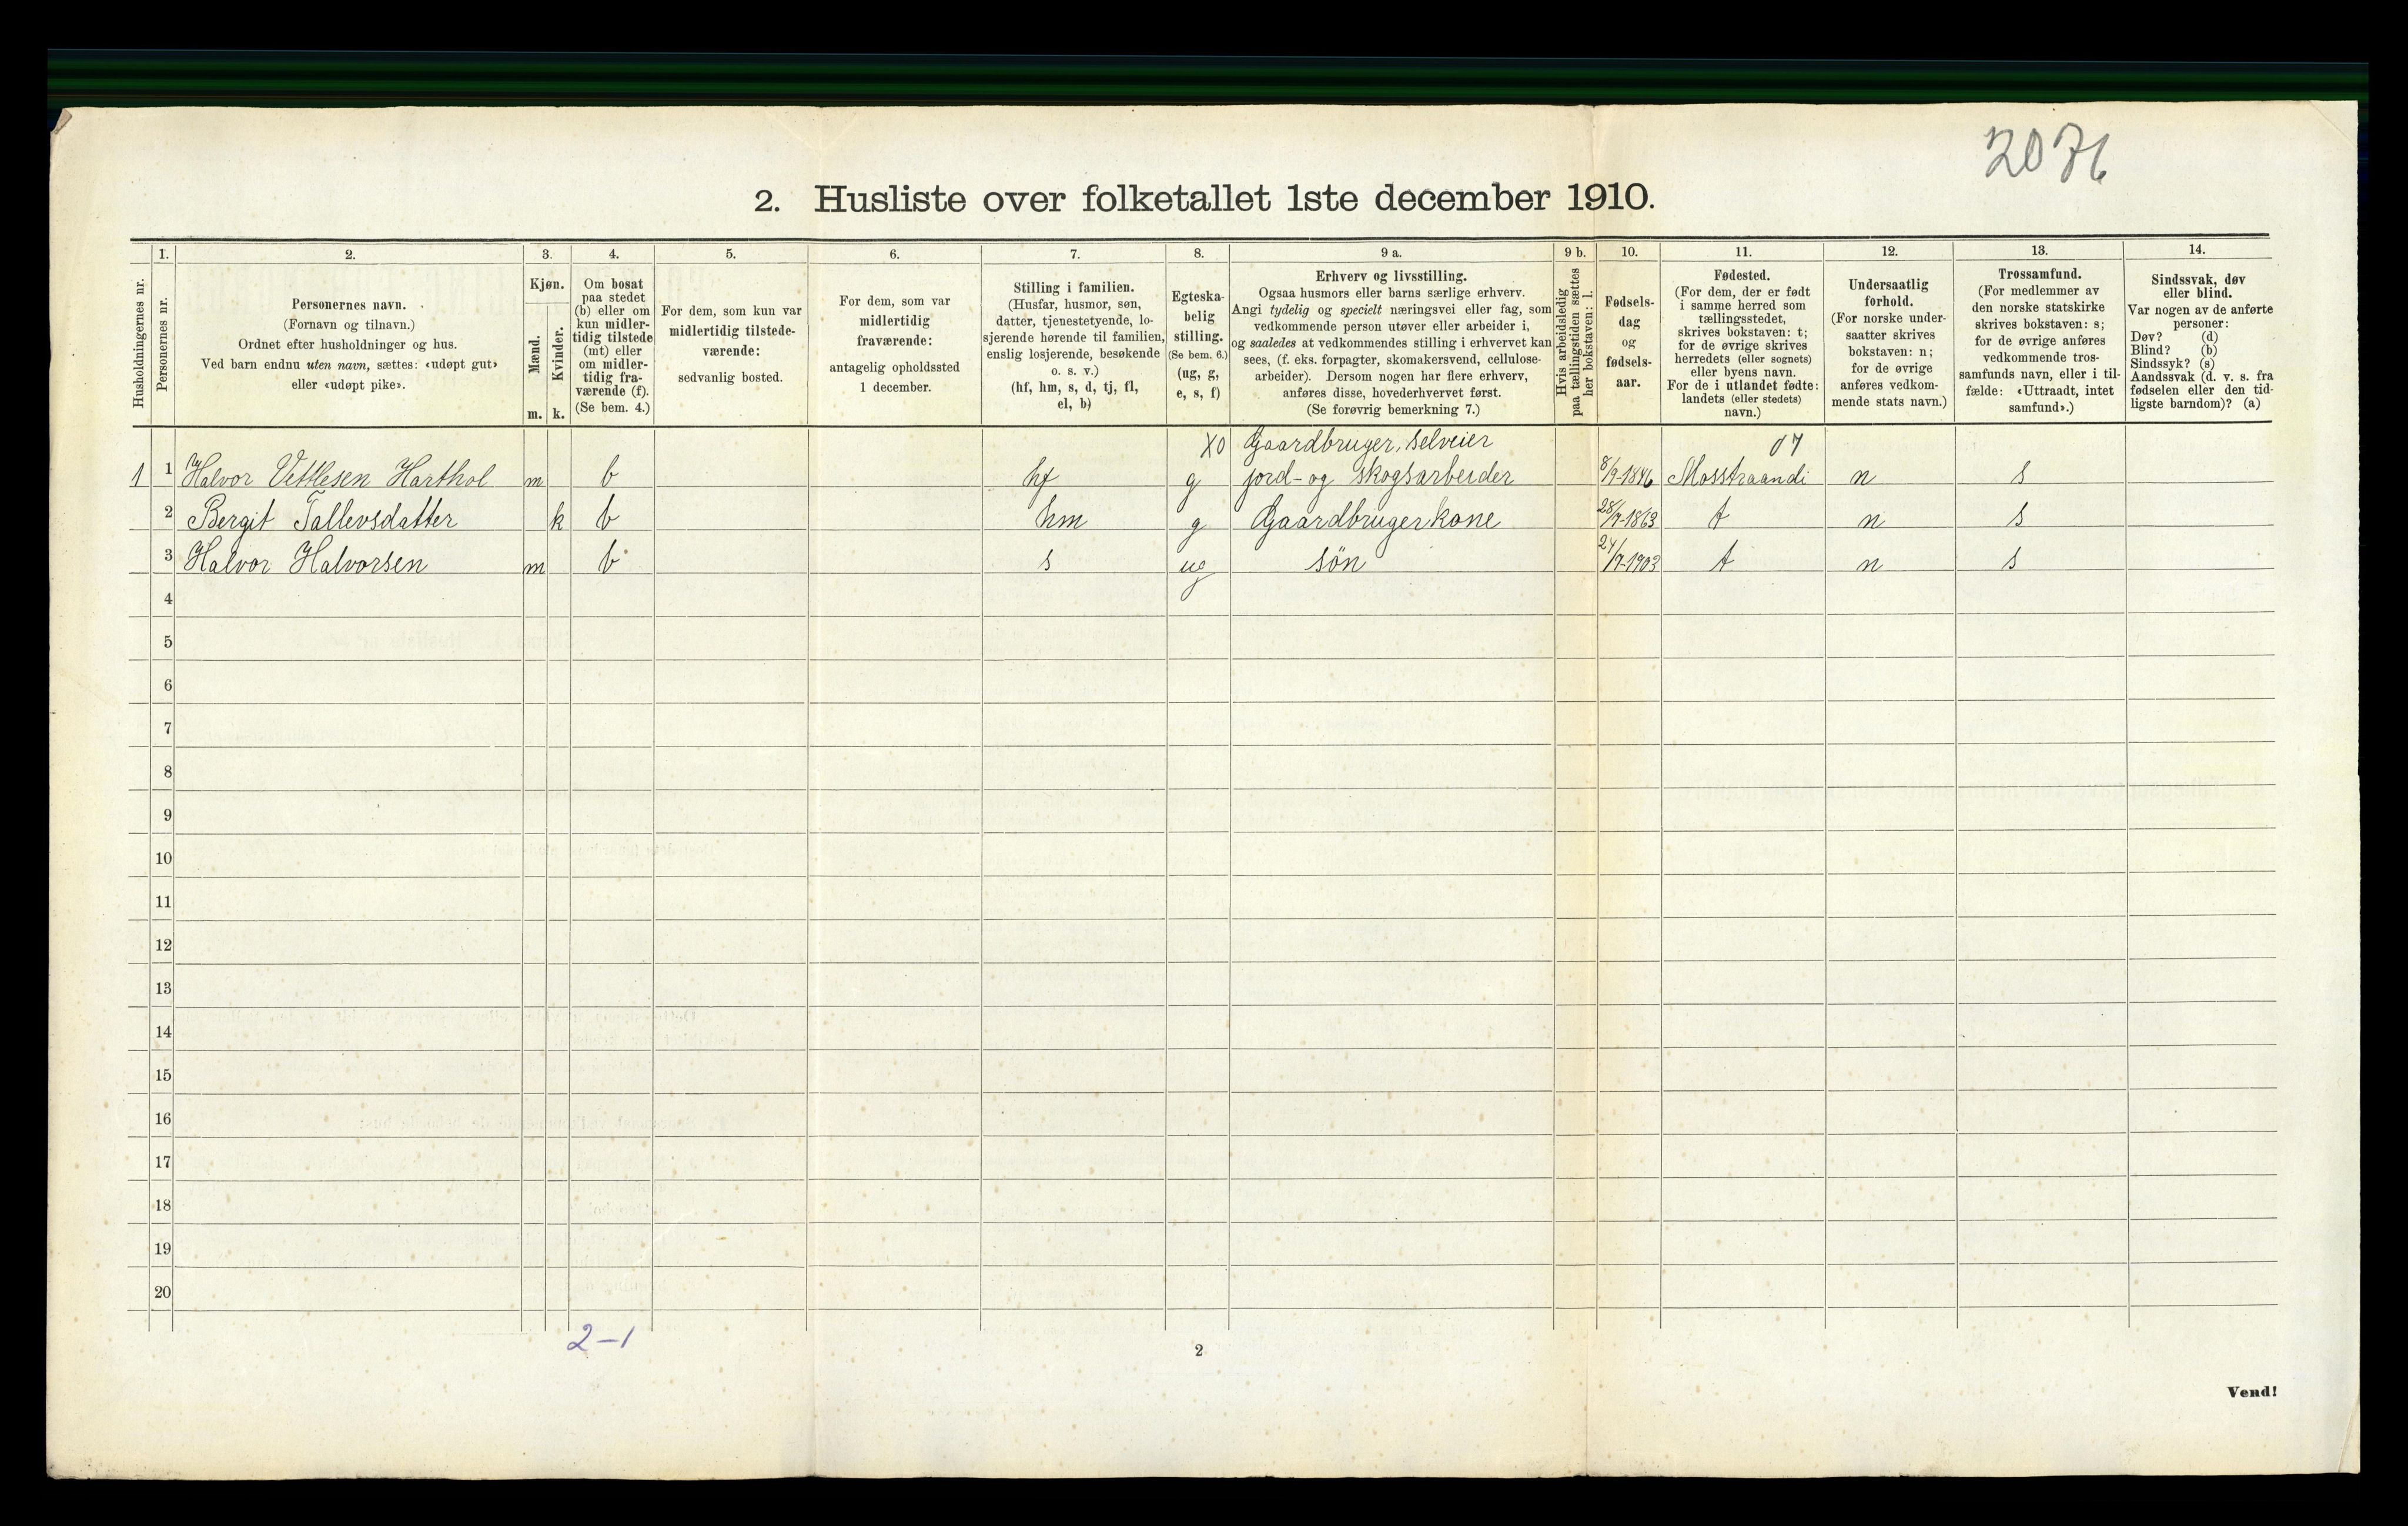 2076
2. Husliste over folketallet 1ste december 1910.
Husholdningernes nr.
1.
Personernes nr.
2.
Personernes navn.
(Fornavn og tilnavn.)
Ordnet efter husholdninger og hus.
Ved barn endnu uten navn, sættes: «udøpt gut»
eller «udøpt pike».
3.
Kjøn.
Mænd.
m.
Kvinder.
k.
4.
Om bosat
paa stedet
(b) eller om
kun midler-
tidig tilstede
(mt) eller
om midler-
tidig fra-
værende (f).
(Se bem. 4.)
5.
For dem, som kun var
midlertidig tilstede-
værende:
sedvanlig bosted.
6.
For dem, som var
midlertidig
fraværende:
antagelig opholdssted
1 december.
7.
Stilling i familien.
(Husfar, husmor, søn,
datter, tjenestetyende, lo-
sjerende hørende til familien,
enslig losjerende, besøkende
o. s. v.)
(hf, hm, s, d, tj, fl,
el, b)
8.
Egteska-
belig
stilling.
(Se bem. 6.)
(ug, g,
e, s, f)
9 a.
Erhverv og livsstilling.
Ogsaa husmors eller barns særlige erhverv.
Angi tydelig og specielt næringsvei eller fag, som
vedkommende person utøver eller arbeider i,
og saaledes at vedkommendes stilling i erhvervet kan
sees, (f. eks. forpagter, skomakersvend, cellulose-
arbeider). Dersom nogen har flere erhverv,
anføres disse, hovederhvervet først.
(Se forøvrig bemerkning 7.)
9 b.
Hvis arbeidsledig
paa tællingstiden sættes
her bokstaven: l.
10.
Fødsels-
dag
og
fødsels-
aar.
11.
Fødested.
(For dem, der er født
i samme herred som
tællingsstedet,
skrives bokstaven: t;
for de øvrige skrives
herredets (eller sognets)
eller byens navn.
For de i utlandet fødte:
landets (eller stedets)
navn.)
12.
Undersaatlig
forhold.
(For norske under-
saatter skrives
bokstaven: n;
for de øvrige
anføres vedkom-
mende stats navn.)
13.
Trossamfund.
(For medlemmer av
den norske statskirke
skrives bokstaven: s;
for de øvrige anføres
vedkommende tros-
samfunds navn, eller i til-
fælde: «Uttraadt, intet
samfund».)
14.
Sindssvak, døv
eller blind.
Var nogen av de anførte
personer:
Døv? (d)
Blind? (b)
Sindssyk? (s)
Aandssvak (d. v. s. fra
fødselen eller den tid-
ligste barndom)? (a)
X0 Gaardbruger, selveier 07
1 1 Halvor Vettlesen Harthol m b hf g jord- og skogsarbeider 8/9-1846 Mosstraandi n s
2 Bergit Tallevsdatter k b hm g Gaardbrugerkone 28/7-1863 t n s
3 Halvor Halvorsen m b s ug søn 24/9-1903 t n s
4
5
6
7
8
9
10
11
12
13
14
15
16
17
18
19
20
2-1
2
Vend!